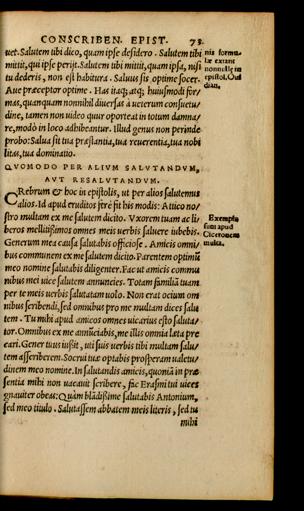 CONSCRIBEN. EPIST. 73.
uet. Salutem tibi dico, quam ipse desidero. Salutem tibi
mittit, qui ipse perijt. Salutem tibi mittit, quam ipsa, nisi
tu dederis, non est habitura. Saluus sis optime socer.
Aue præceptor optime. Has itaq; atq; huiusmodi for/
mas, quanquam nonnihil diuersas à ueterum consuetu/
dine, tamen non uideo quur oporteat in totum damna/
re, modò in loco adhibeantur. Illud genus non perinde
probo: Salua sit tua præstantia, tua reuerentia, tua nobi
litas, tua dominatio.
nis formu/
læ extant
nonnullæ in
epistol. Oui
dian.
QVOMODO PER ALIVM SALVTANDVM,
AVT RESALVTANDVM.
CRebrum & hoc in epistolis, ut per alios salutemus
alios. Id apud eruditos ferè fit his modis: Attico no/
stro multam ex me salutem dicito. Vxorem tuam ac li/
beros mellitissimos omnes meis uerbis saluere iubebis.
Generum mea causa salutabis officiose. Amicis omni/
bus communem ex me salutem dicito. Parentem optimū
meo nomine salutabis diligenter. Fac ut amicis commu
nibus mei uice salutem annuncies. Totam familiā tuam
per te meis uerbis salutatam uolo. Non erat ocium om
nibus scribendi, sed omnibus pro me multam dices salu
tem. Tu mihi apud amicos omnes uicarius esto saluta/
tor. Omnibus ex me annūciabis, me illis omnia læta pre
cari. Gener tuus iußit, uti suis uerbis tibi multam salu/
tem asscriberem. Socrui tuæ optabis prosperam ualetu/
dinem meo nomine. In salutandis amicis, quoniā in præ
sentia mihi non uacauit scribere, fac Erasmi tui uices
gnauiter obeas: Quàm blādißime salutabis Antonium,
sed meo titulo. Salutassem abbatem meis literis, sed tu
Exempla
sunt apud
Ciceronem
multa.
mihi